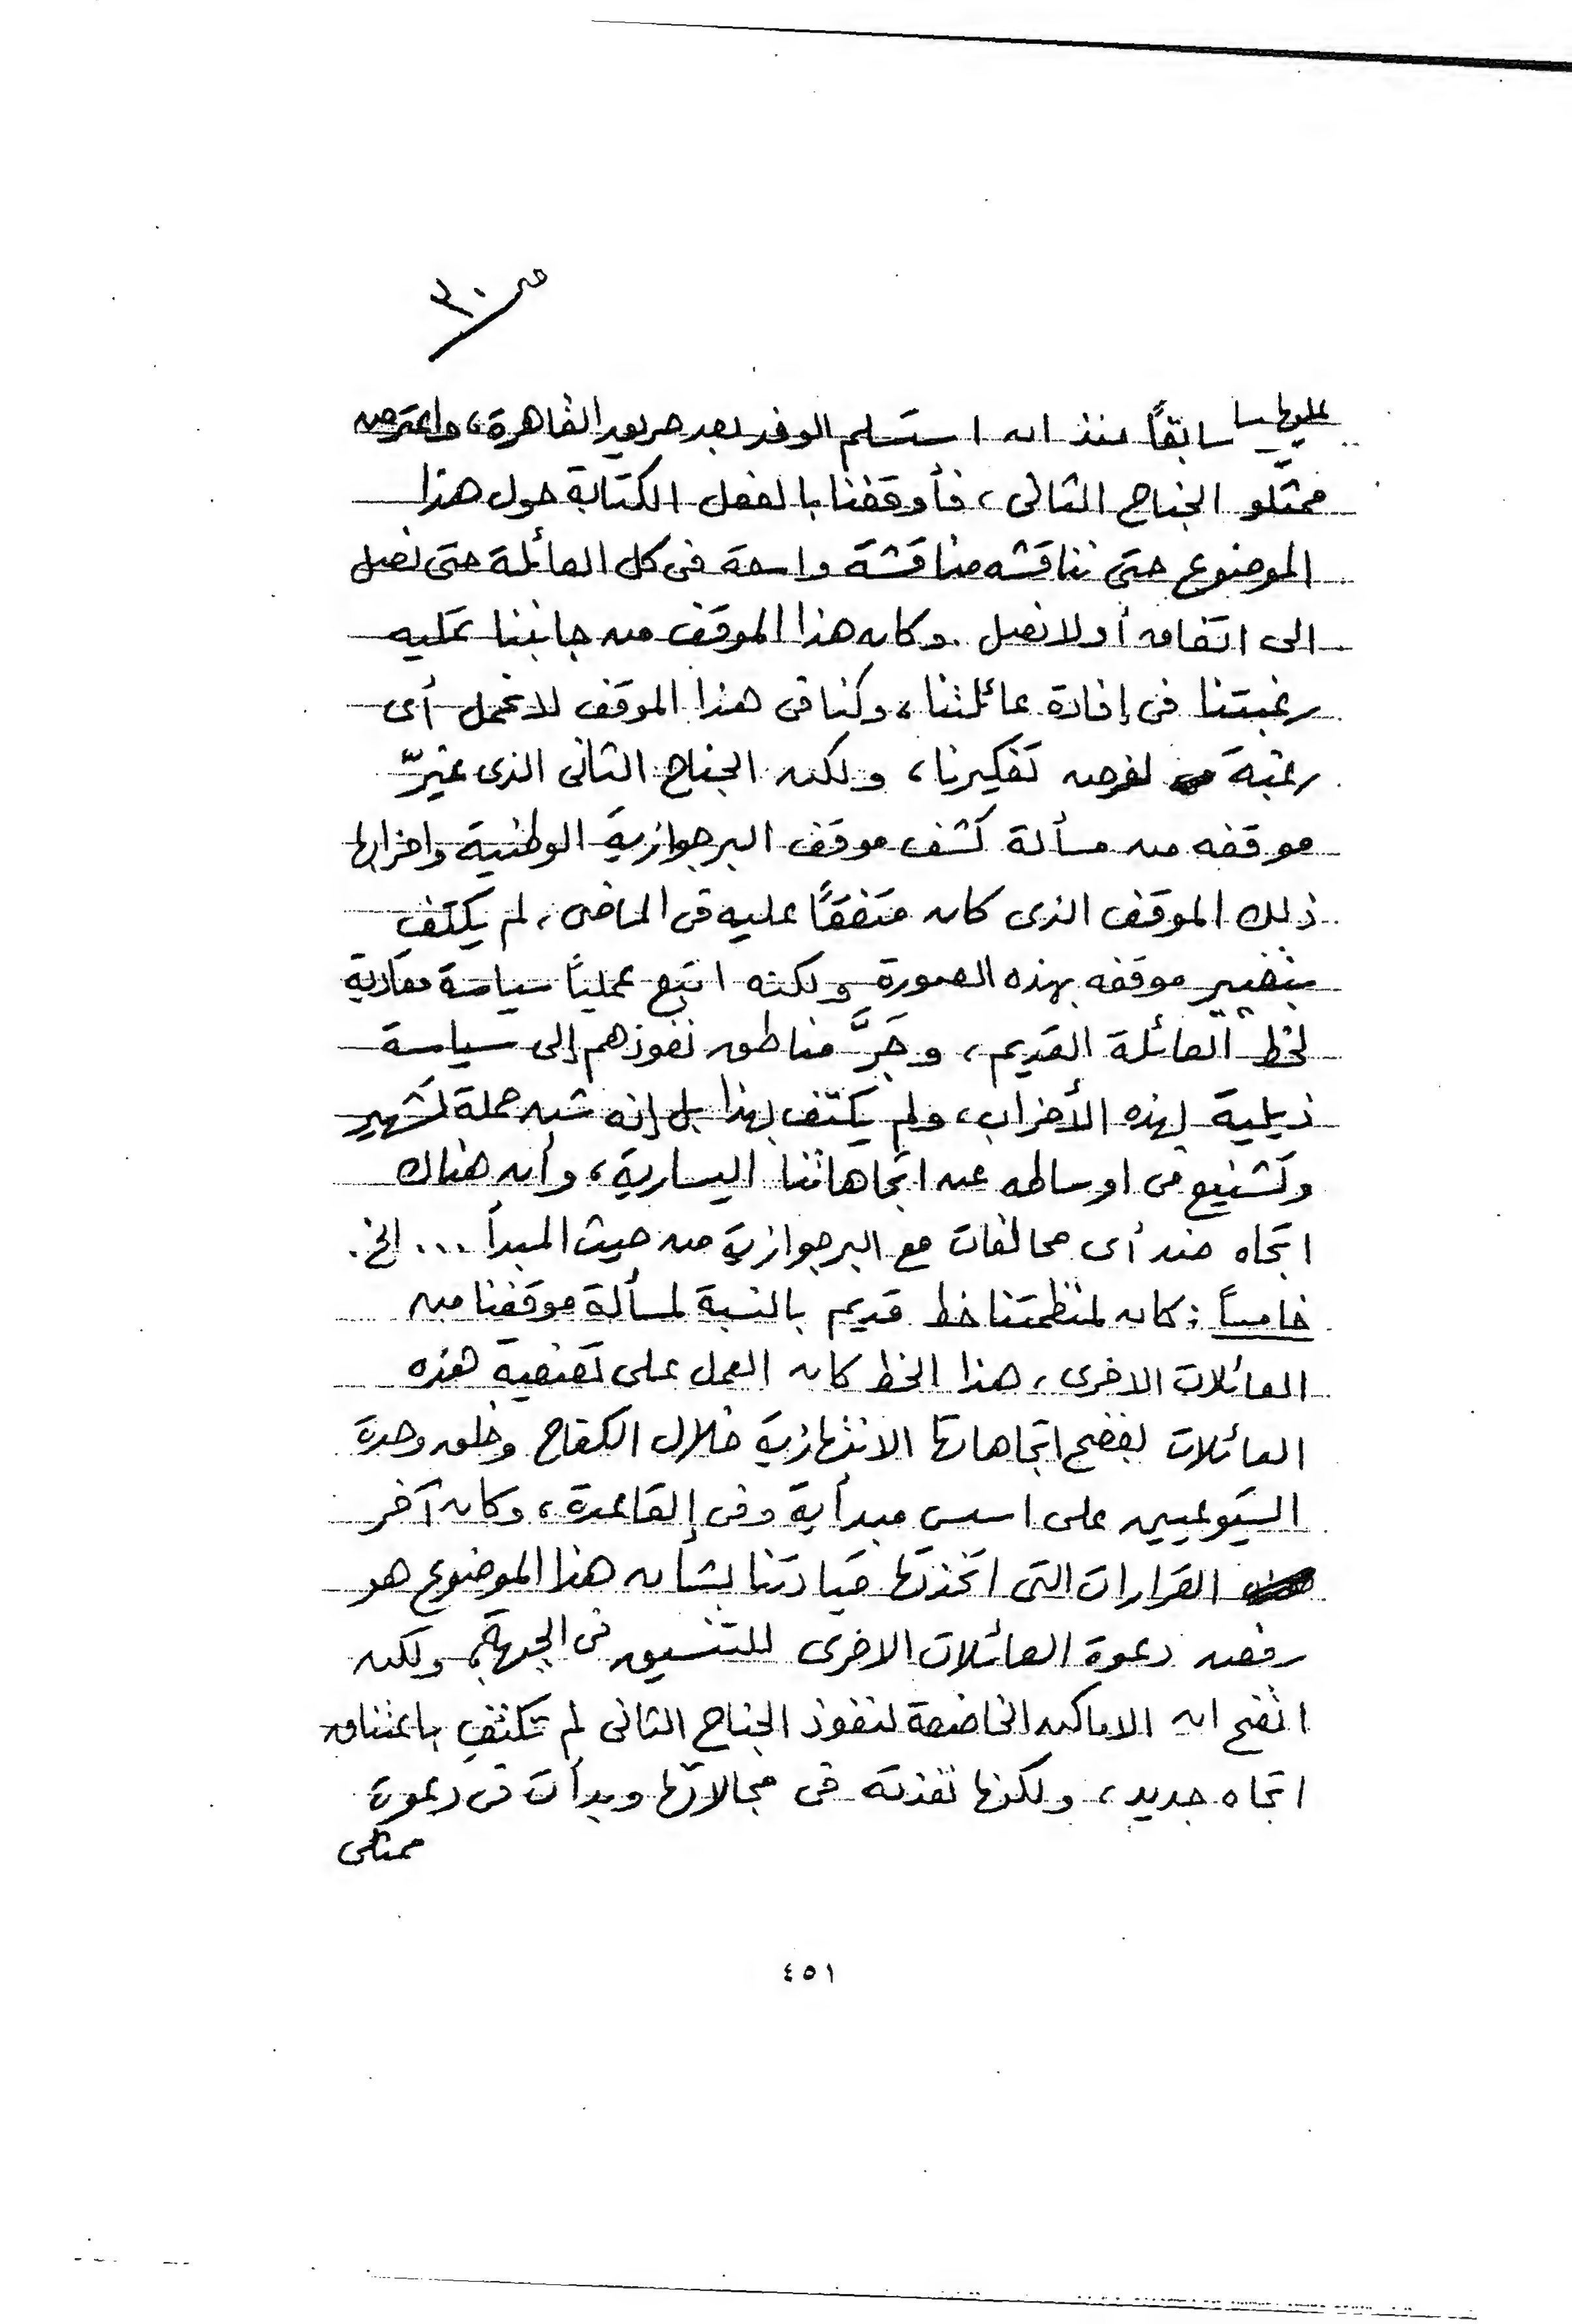 ص ٣٠
عليها سابقاً منذ ان استسلم الوفد بعد حريق القاهرة، واعترض
ممثلو الجناح الثانى، فأوقفنا بالفعل الكتابة حول هذا
الموضوع حتى نناقشه مناقشة واسعة فى كل العائلة حتى نصل
الى اتفاق أو لا نصل. وكان هذا الموقف من جانبنا تمليه
رغبتنا فى إفادة عائلتنا، وكنا فى هذا الموقف لا نحمل أى
رغبة لفرض تفكيرنا، ولكن الجناح الثانى الذى غيّر
موقفه من مسألة كشف موقف البرجوازية الوطنية واحزابها
ذلك الموقف الذى كان متفقاً عليه فى الماضى، لم يكتفِ
بتغيير موقفه بهذه الصورة ولكنه اتبع عملياً سياسة معادية
لخط العائلة القديم، وجَرَّ مناطق نفوذهم إلى سياسة
ذيلية لهذه الأحزاب، ولم يكتف بهذا بل إنه شبه حملة تشهير
وتشنيع فى اوساطه عن اتجاهاتنا اليسارية، وأن هناك
اتجاه ضد أى محالفات مع البرجوازية من حيث المبدأ ... الخ.
خامساً: كان لمنظمتنا خط قديم بالنسبة لمسألة موقفنا من
العائلات الاخرى، هذا الخط كان العمل على تصفية هذه
العائلات بفضح اتجاهاتها الانتهازية خلال الكفاح وخلق وحدة
الشيوعيين على اسس مبدأية وفى القاعدة، وكان آخر
القرارات التى اتخذتها قيادتنا بشأن هذا الموضوع هو
رفض دعوة العائلات الاخرى للتنسيق فى الجبهة، ولكن
اتضح ان الاماكن الخاضعة لنفوذ الجناح الثانى لم تكتفِ باعتناق
اتجاه جديد، ولكنها نفذته فى مجالاتها وبدأت فى دعوة
ممثلى
٤٥١